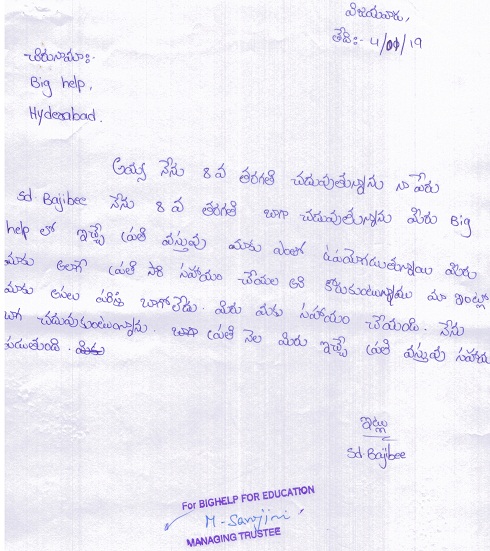 విజయవాడ,
తేది:- 4/01/19
చిరునామా:-
Big help,
Hyderabad.
అయ్య నేను 8 వ తరగతి చదువుతున్నాను నా పేరు
Sd Bajibee నేను 8 వ తరగతి బాగా చదువుతున్నాను మీరు Big
help లో ఇచ్చే ప్రతి వస్తువు మాకు ఎంతో ఉపయోగపడుతున్నాయి మీరు
మాకు అలాగే ప్రతి సారి సహాయం చేయాల అని కోరుకుంటున్నాము మా ఇంట్లో
మాకు అసలు పరిస్థితి బాగోలేదు. మీరు మకు సహాయం చేయండి. నేను
బాగ చదువుకుంటున్నాను. బాగా ప్రతి నెల మీరు ఇచ్చే ప్రతి వస్తువు సహాయ
పడుతుంది.
ఇట్లు
Sd Bajibee
For BIGHELP FOR EDUCATION
M-Sanjini
MANAGING TRUSTEE